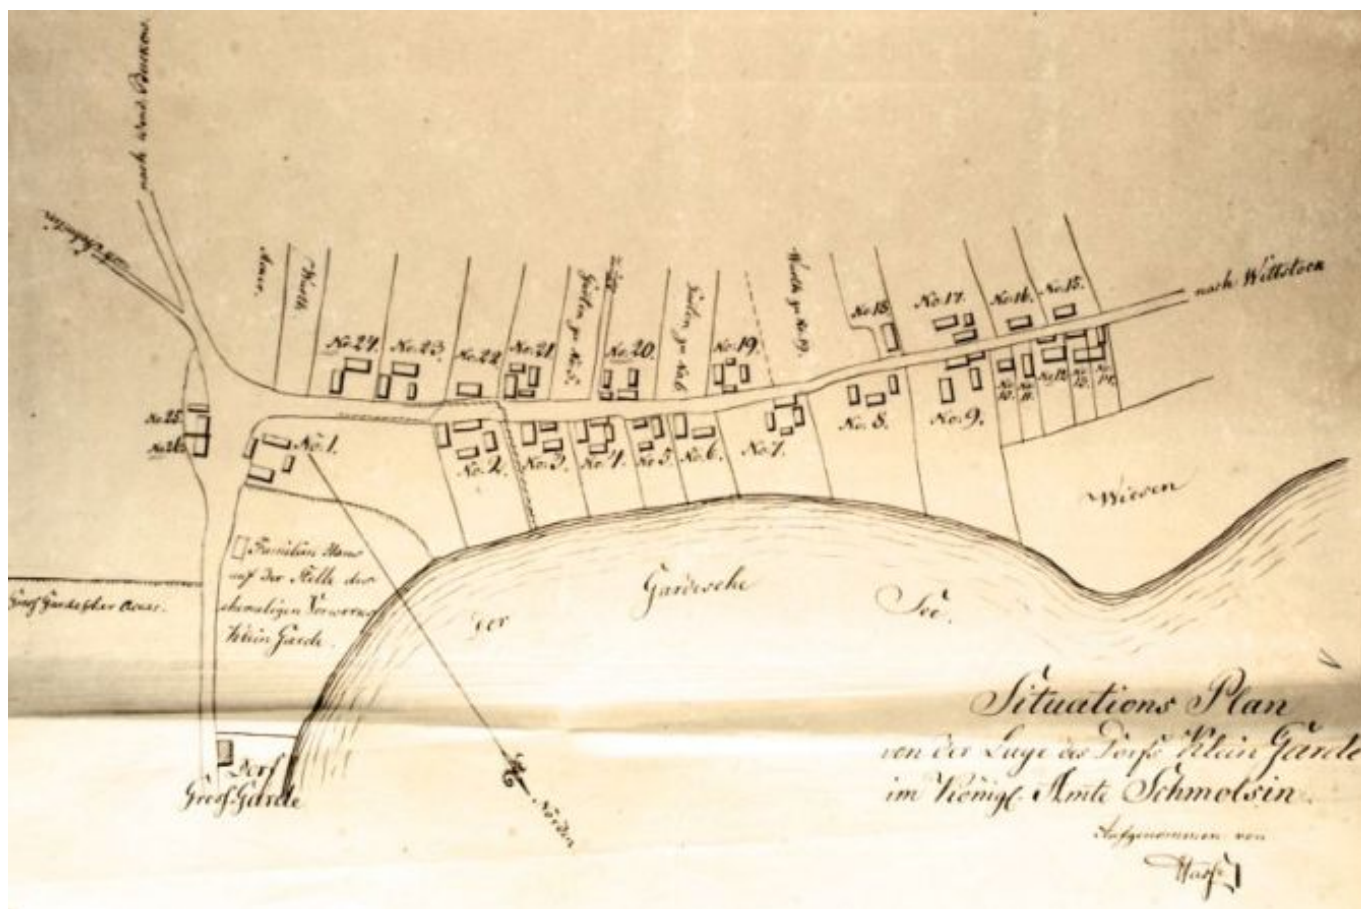 nach Wend. Buckow.
nach Schmolsin
Acker.
Wurth
Garten zu No. 5.
Garten zu No. 6
Wurth zu No. 19.
nach Wittstock
No. 24.
No. 23.
No. 22.
No. 21
No. 20.
No. 19.
No. 18.
No. 17.
No. 16.
No. 15.
No. 25.
No. 26.
No. 1.
No. 2.
No. 3.
No. 4.
No. 5.
No. 6.
No. 7.
No. 8.
No. 9.
No. 10.
No. 11.
No. 12.
No. 13.
No. 14.
Wiesen
Familien Haus
auf der Stelle des
ehemaligen Vorwerks
Klein Garde.
Gross Gardescher Acker.
Der Gardesche See.
Dorf
Gross-Garde
Norden
Situations Plan
von der Lage des Dorfs Klein Garde
im Königl. Amte Schmolsin.
Aufgenommen von